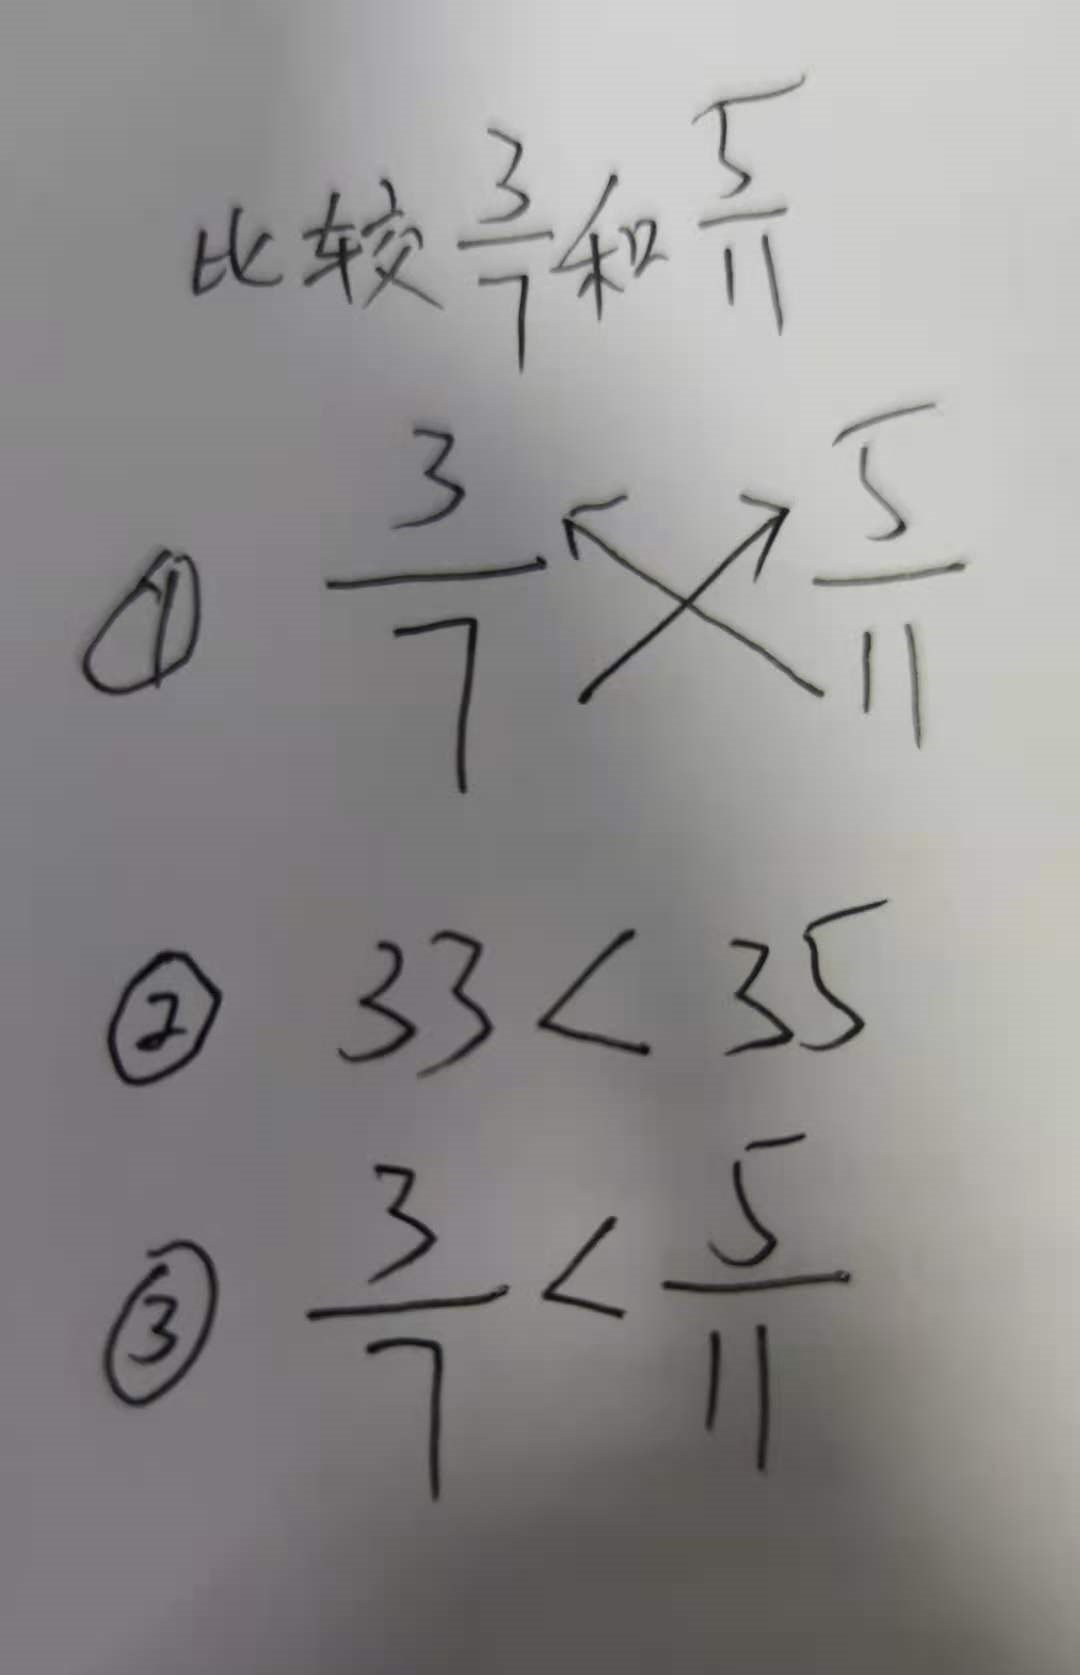 比较 3/7 和 5/11
① 3/7 ↖↗ 5/11
② 33 < 35
③ 3/7 < 5/11